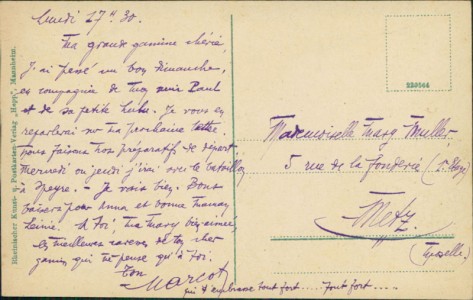 Lundi 17 h 30.
Ma grande gamine chérie,
J'ai passé un bon Dimanche,
en compagnie de mon Paul
et de sa petite Lulu. Je vous en
reparlerai sur ma prochaine lettre.
nous faisons nos préparatifs de départ.
mercredi ou jeudi j'irai avec le bataillon
à Speyre. - Je vais bien. Bons
baisers pour Anna et bonne maman
A toi, ma Mary bien aimée
les meilleures caresses de ton cher
gamin, qui ne pense qu'à toi.
Ton
Marcel
qui t'embrasse tout fort.... tout fort.....
Rheinischer Kunst- u. Postkarten-Verlag „Hepp“, Mannheim.
Mademoiselle Mary Muller
5 rue de la Fonderie
Metz.
(Moselle)